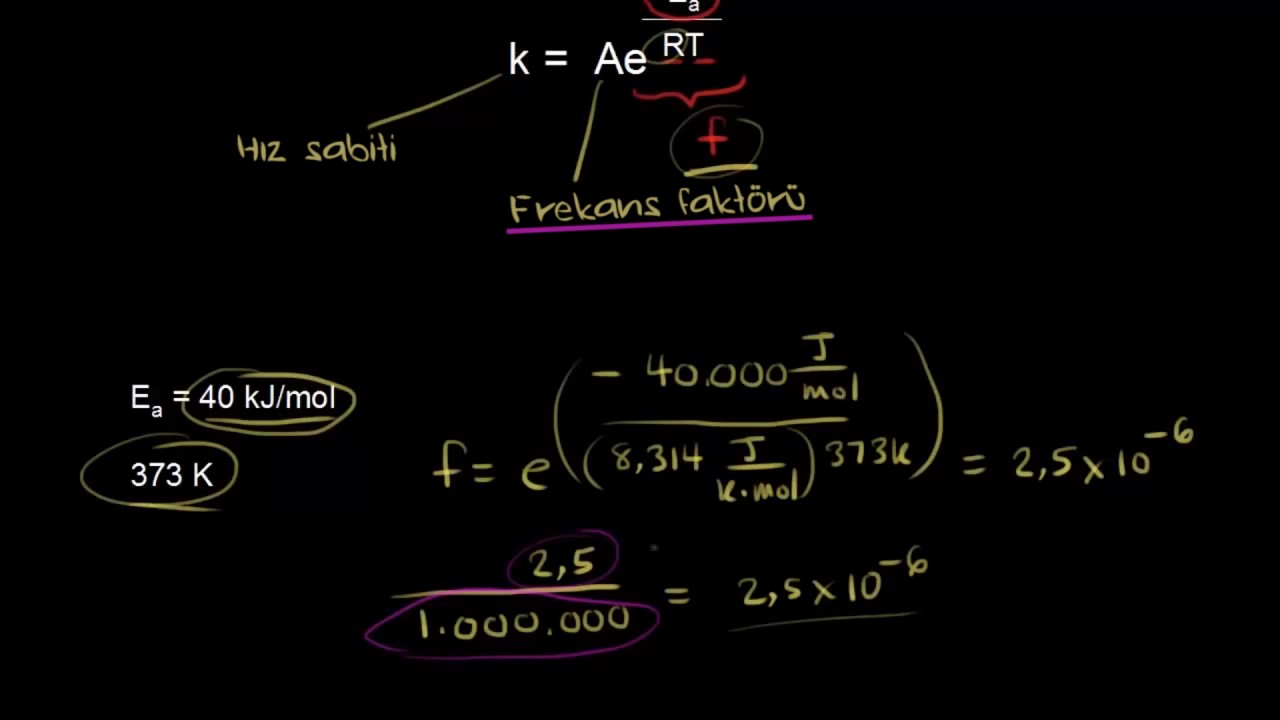 Ea
k = Ae RT
f
Hız sabiti
Frekans faktörü
Ea = 40 kJ/mol
373 K
f = e^(- 40.000 J/mol / (8,314 J/K.mol) 373K) = 2,5 x 10^-6
2,5 / 1.000.000 = 2,5 x 10^-6